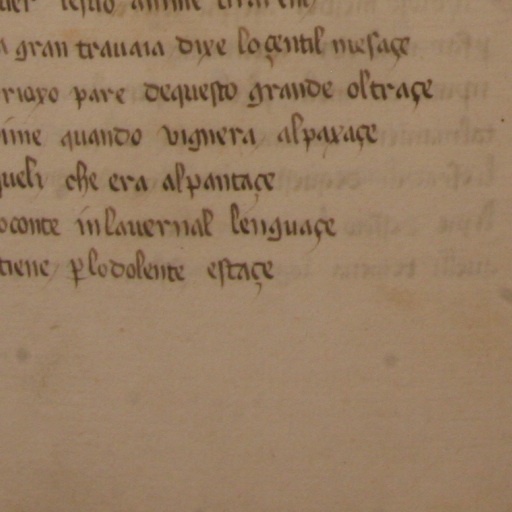 gran travaia dixe lo gentil mesaçe
rioxo pare dequesto grande oltraçe
ime quando vignera alpaxaçe
queli che era alpantaçe
oconte inlavernal lenguaçe
tiene ꝑlodolente estaçe